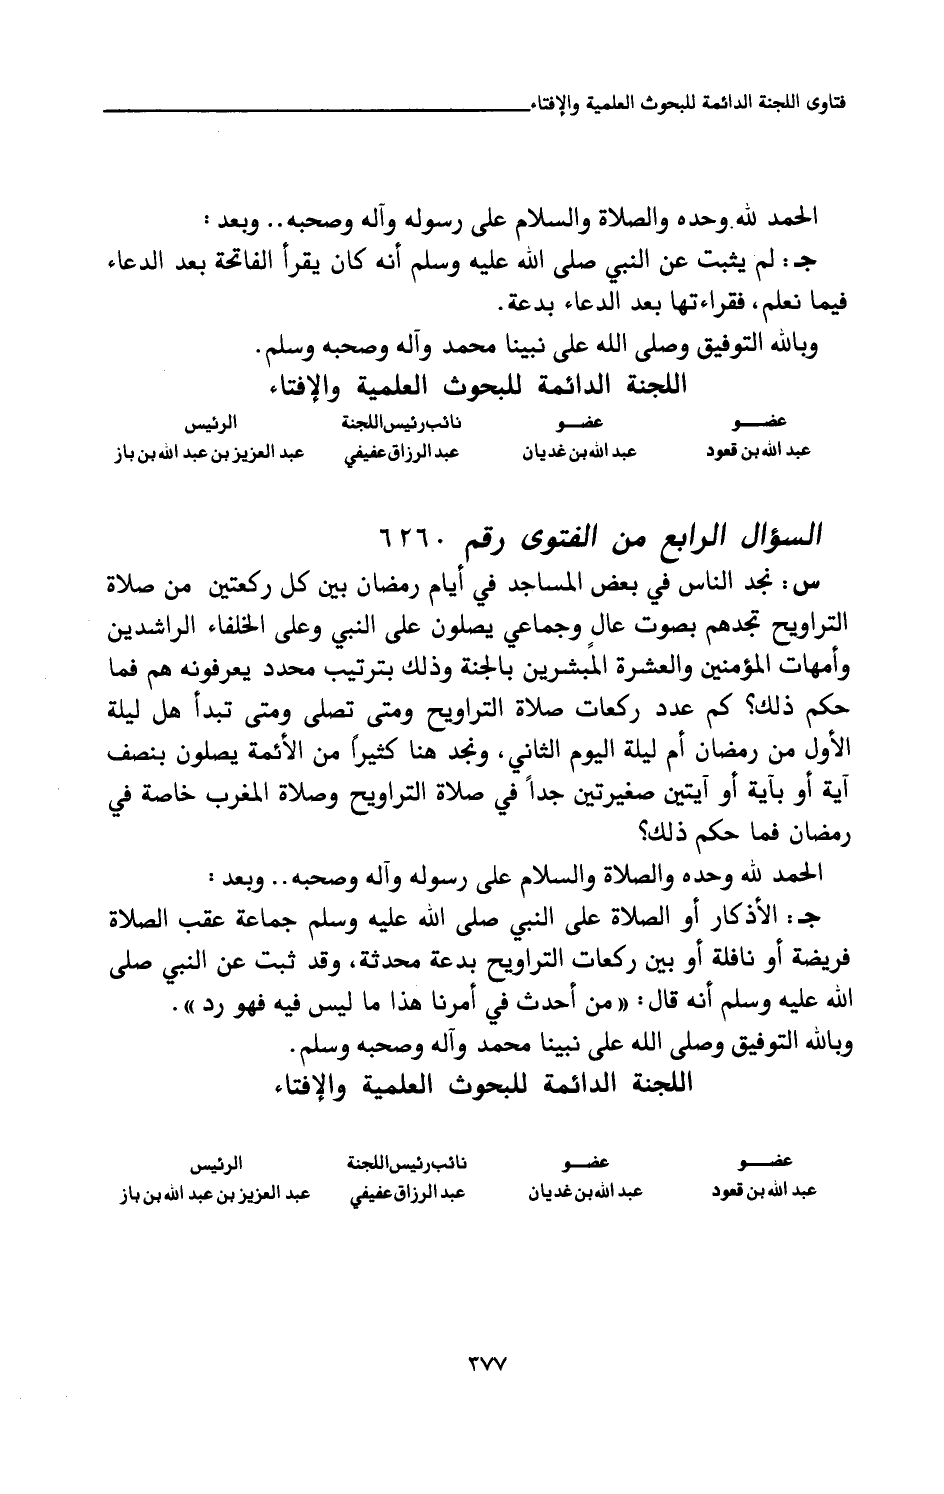 فتاوى اللجنة الدائمة للبحوث العلمية والإفتاء
الحمد لله وحده والصلاة والسلام على رسوله وآله وصحبه.. وبعد:
جـ: لم يثبت عن النبي صلى الله عليه وسلم أنه كان يقرأ الفاتحة بعد الدعاء
فيما نعلم، فقراءتها بعد الدعاء بدعة.
وبالله التوفيق وصلى الله على نبينا محمد وآله وصحبه وسلم.
اللجنة الدائمة للبحوث العلمية والإفتاء
عضـــو عضـــو نائب رئيس اللجنة الرئيس
عبد الله بن قعود عبد الله بن غديان عبد الرزاق عفيفي عبد العزيز بن عبد الله بن باز
السؤال الرابع من الفتوى رقم ٦٢٦٠
س: نجد الناس في بعض المساجد في أيام رمضان بين كل ركعتين من صلاة
التراويح تجدهم بصوت عالٍ وجماعي يصلون على النبي وعلى الخلفاء الراشدين
وأمهات المؤمنين والعشرة المبشرين بالجنة وذلك بترتيب محدد يعرفونه هم فما
حكم ذلك؟ كم عدد ركعات صلاة التراويح ومتى تصلى ومتى تبدأ هل ليلة
الأول من رمضان أم ليلة اليوم الثاني، ونجد هنا كثيراً من الأئمة يصلون بنصف
آية أو بآية أو آيتين صغيرتين جداً في صلاة التراويح وصلاة المغرب خاصة في
رمضان فما حكم ذلك؟
الحمد لله وحده والصلاة والسلام على رسوله وآله وصحبه.. وبعد:
جـ: الأذكار أو الصلاة على النبي صلى الله عليه وسلم جماعة عقب الصلاة
فريضة أو نافلة أو بين ركعات التراويح بدعة محدثة، وقد ثبت عن النبي صلى
الله عليه وسلم أنه قال: «من أحدث في أمرنا هذا ما ليس فيه فهو رد».
وبالله التوفيق وصلى الله على نبينا محمد وآله وصحبه وسلم.
اللجنة الدائمة للبحوث العلمية والإفتاء
عضـــو عضـــو نائب رئيس اللجنة الرئيس
عبد الله بن قعود عبد الله بن غديان عبد الرزاق عفيفي عبد العزيز بن عبد الله بن باز
٣٧٧